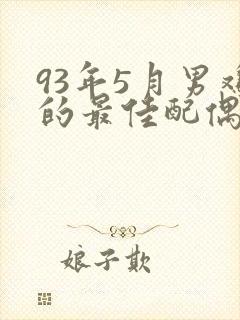 93年5月男
的最佳配偶
娘子欺